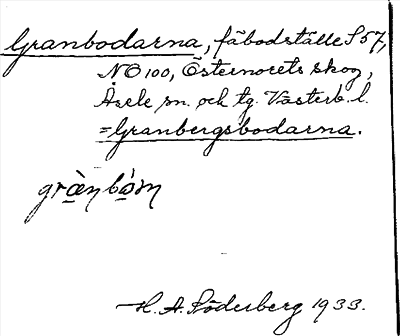 Granbodarna, fäbodställe S 57,
NO 100, Östernorets skog,
Åsele sn. och tg. Västerb. l.
=Granbergsbodarna.
H. A. Söderberg 1933.